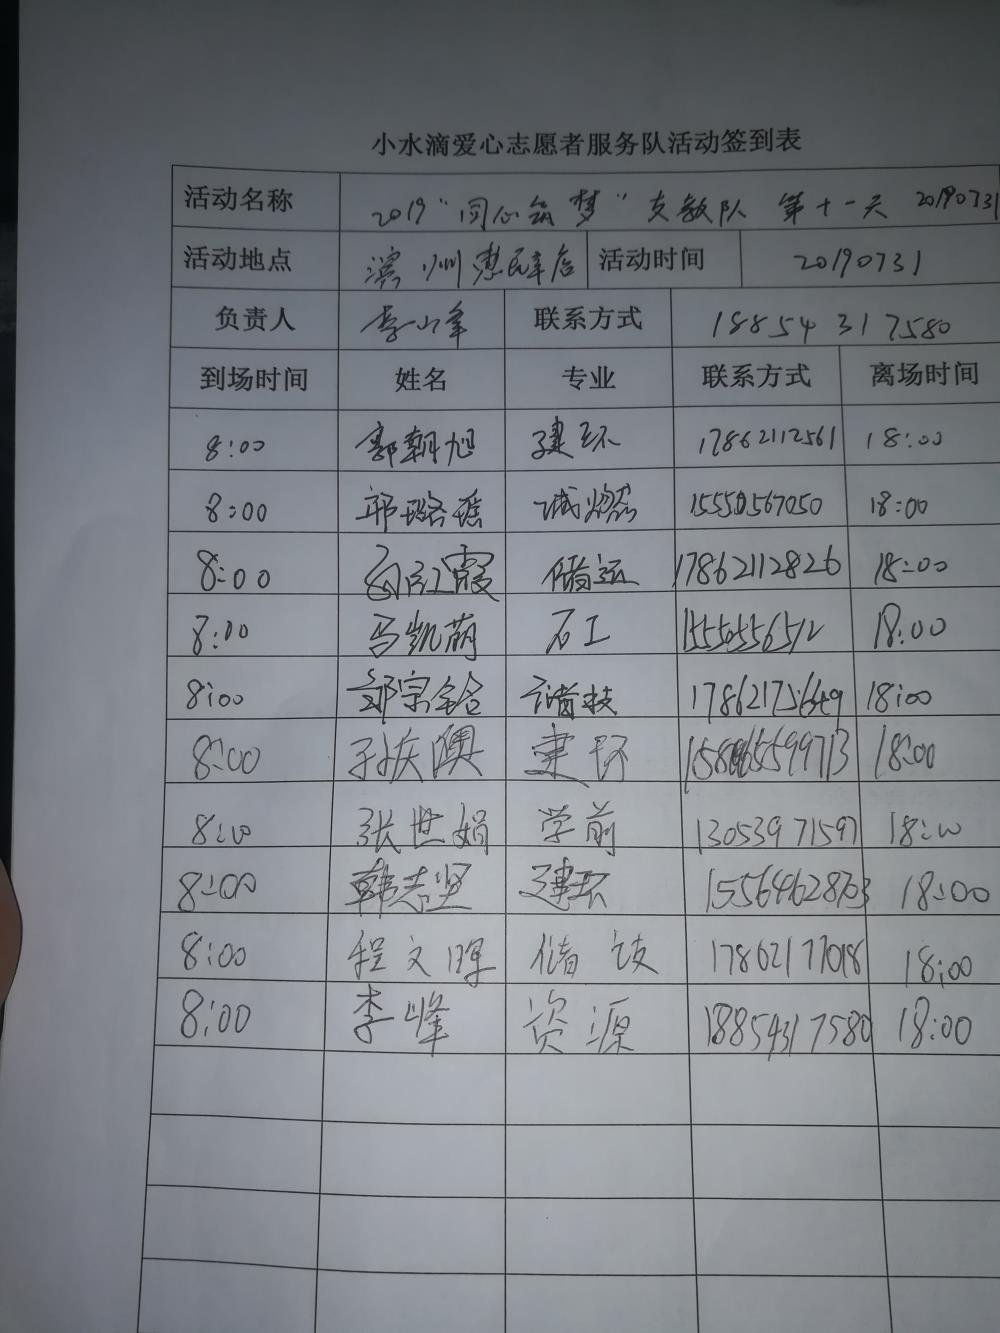 小水滴爱心志愿者服务队活动签到表
活动名称 2019"同心筑梦"支教队 第十一天 20190731
活动地点 滨州惠民辛店 活动时间 20190731
负责人 李峰 联系方式 18854317580
到场时间 姓名 专业 联系方式 离场时间
8:00 郭朝旭 建环 17862112561 18:00
8:00 邱璐瑶 15550567050 18:00
8:00 红霞 储运 17862112826 18:00
8:00 马凯萌 石工 15550556512 18:00
8:00 邹宗铪 储技 17862175649 18:00
8:00 于庆澳 建环 18:00
8:00 张世娟 学前 13053971597 18:00
8:00 韩志坚 建环 15564628703 18:00
8:00 程文晖 储技 17862177018 18:00
8:00 李峰 资源 18854317580 18:00